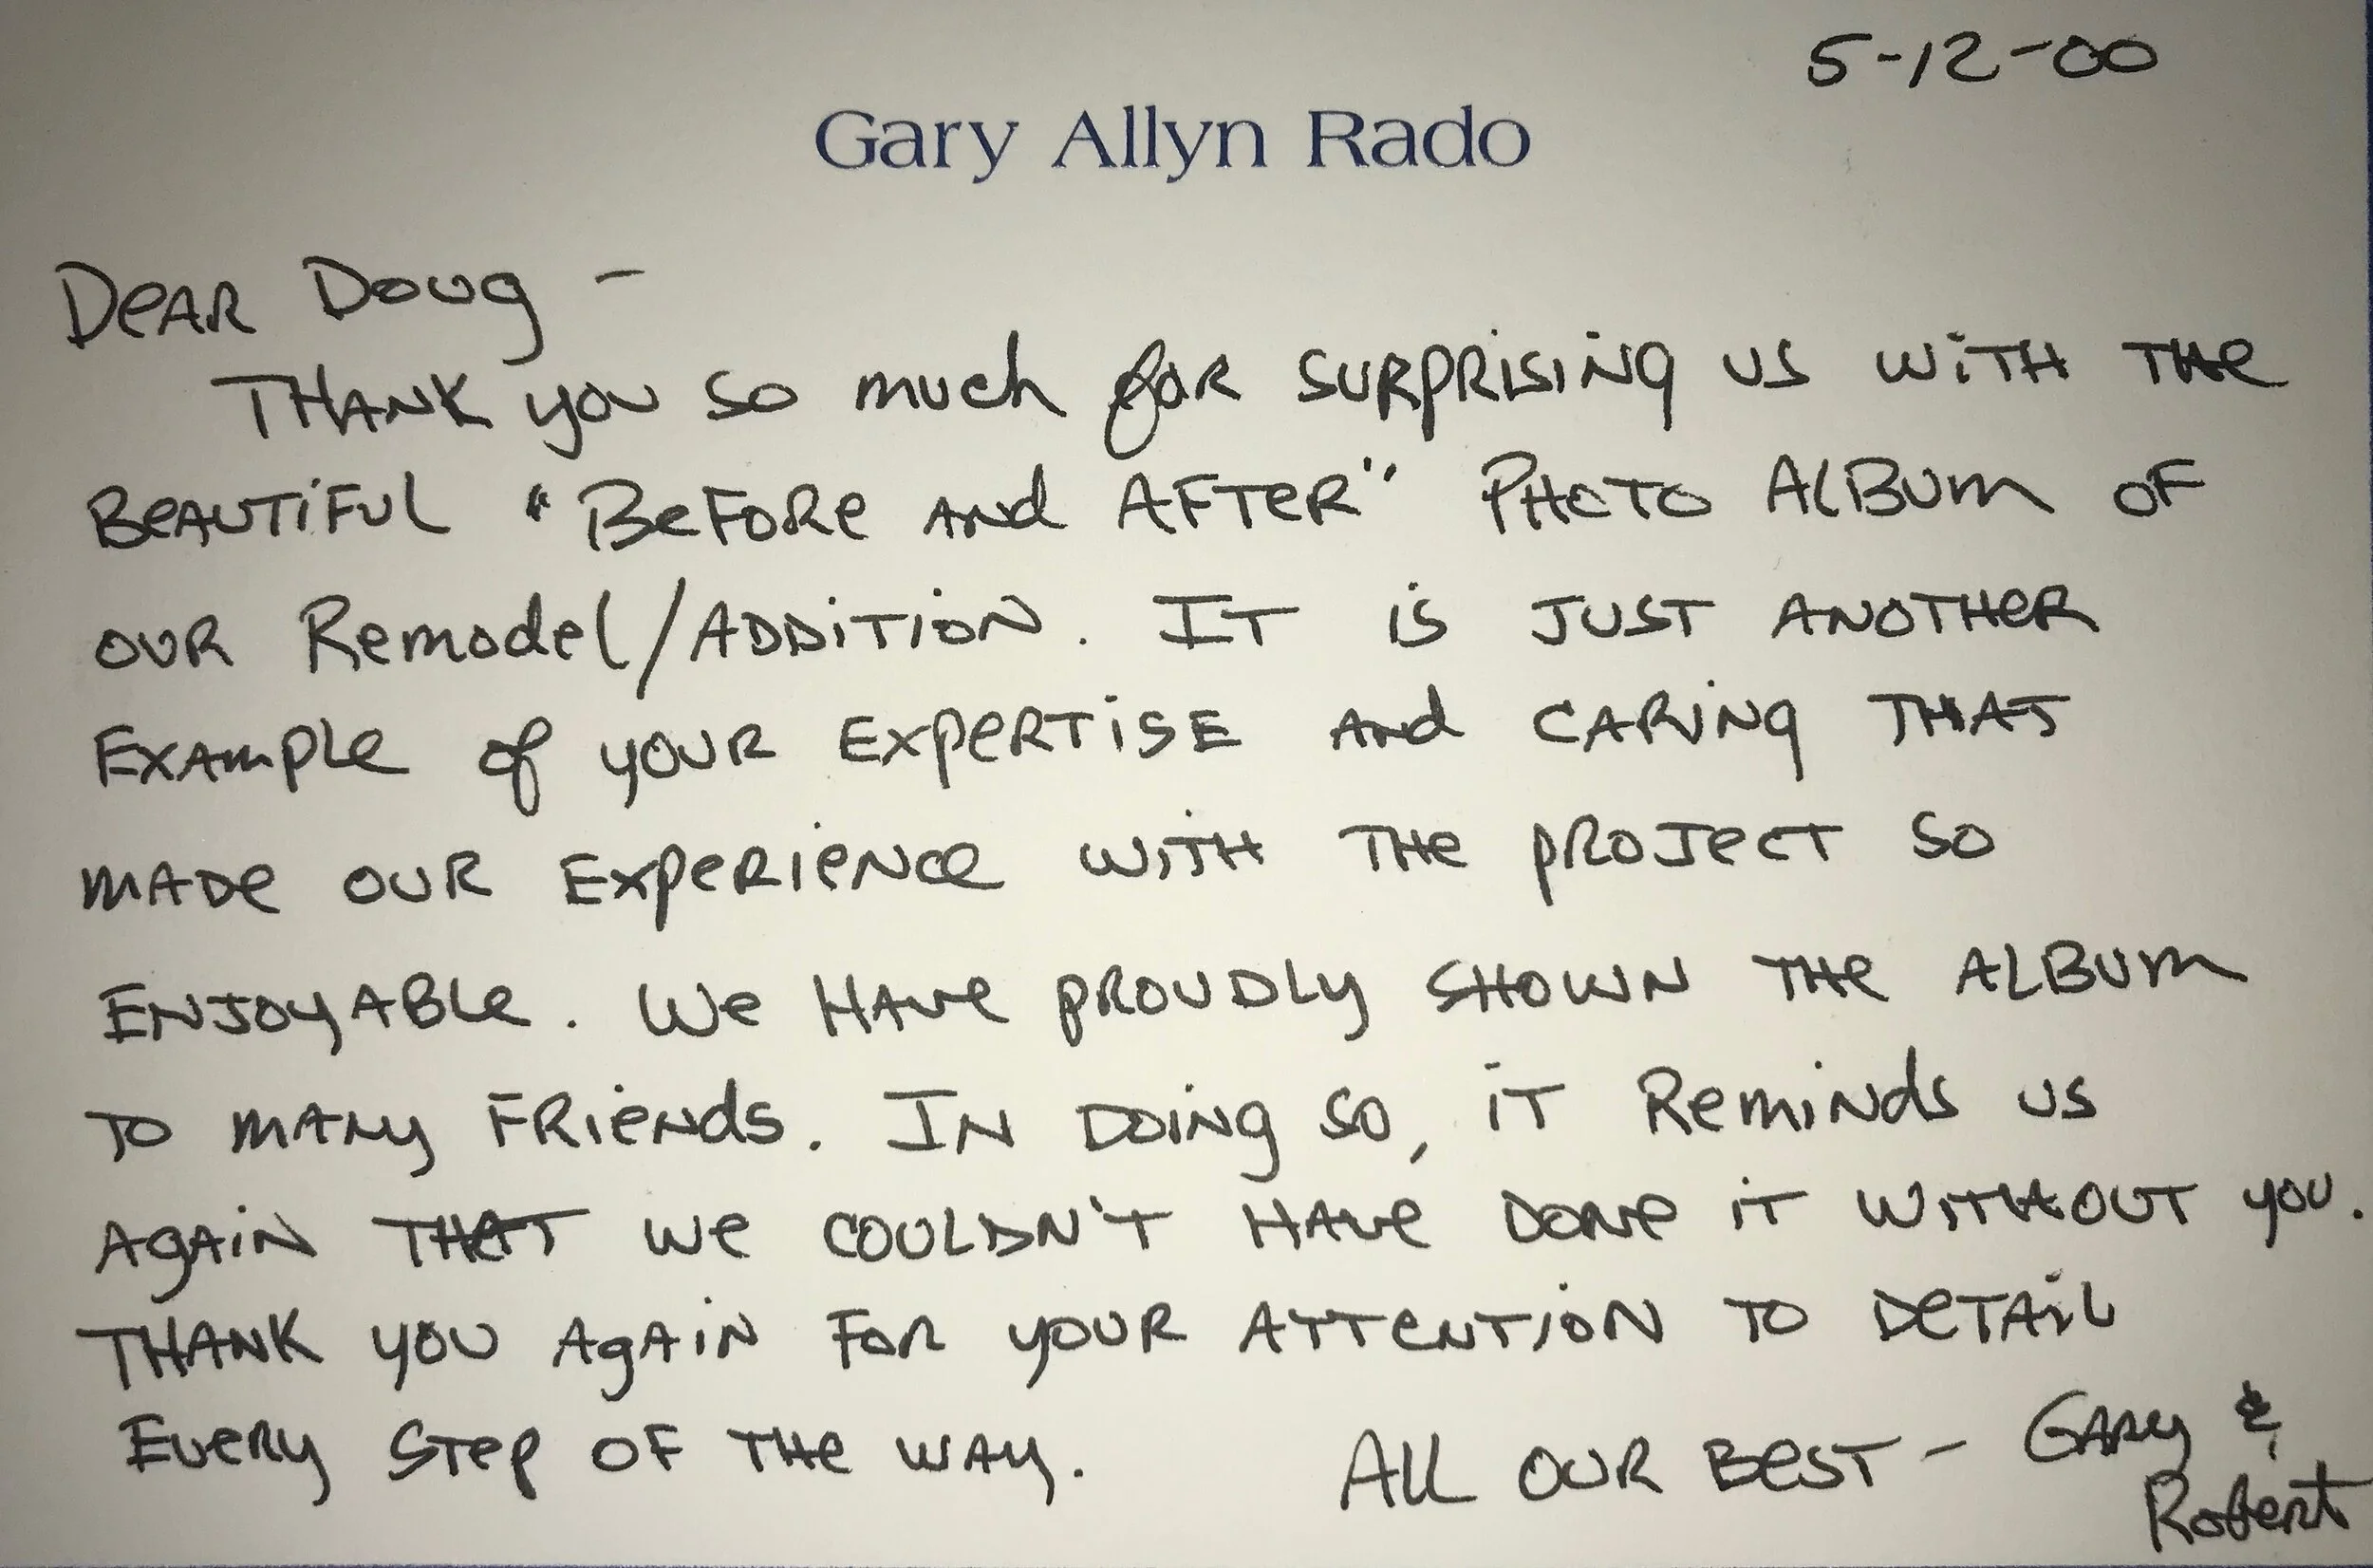 5-12-00
Gary Allyn Rado
Dear Doug -
Thank you so much for surprising us with the
beautiful "Before and After" photo album of
our Remodel/Addition. It is just another
example of your expertise and caring that
made our experience with the project so
enjoyable. We have proudly shown the album
to many friends. In doing so, it reminds us
again that we couldn't have done it without you.
Thank you again for your attention to detail
every step of the way. All our best - Gary &
Robert